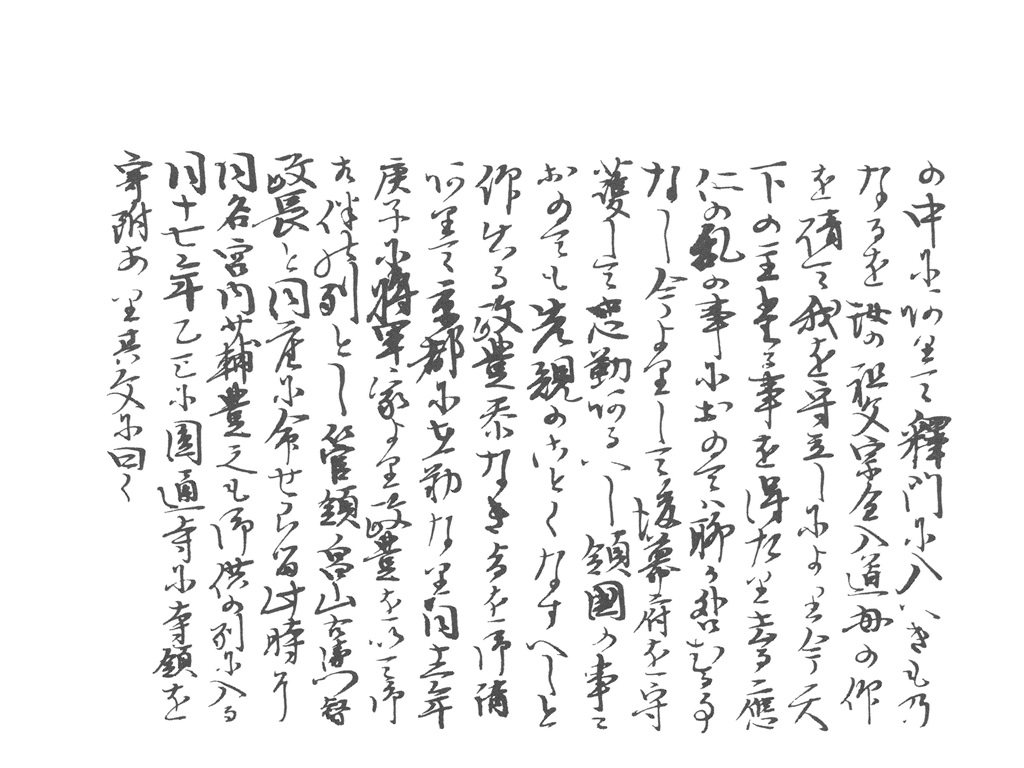 の中にありて釋門に入へきもの乃
なるを汝の祖父宗全入道毎の仰
を請て我を守立しによりて今天
下の主たる事を得たり去る応
仁の乱の事においては聊か咎むる事
なし今よりして後幕府を守
護して忠勤あるへし領国の事は
おのても先規のことくなすへしと
仰出る政豊忝なき旨を御請
ありて京都に在勤なり同十二年
庚子に将軍家より政豊を以て御
相伴の列とし管領畠山左衛門督
政長と同座に命せらる此時
同名宮内少輔豊之も御供の列に入る
同十七年乙巳に圓通寺に寺領を
寄附あり其文に曰く